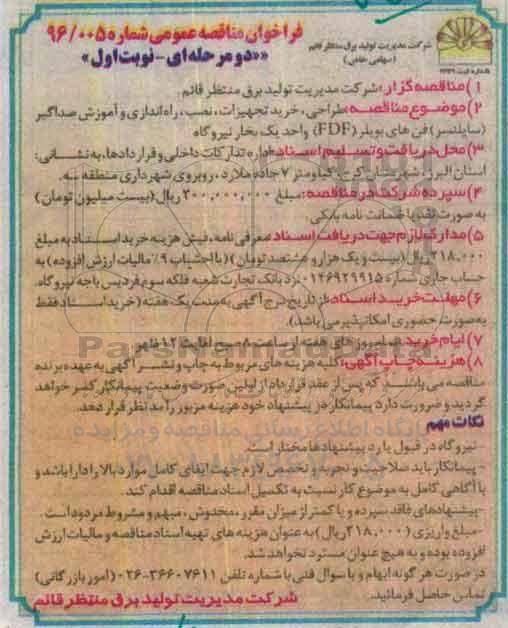 فراخوان مناقصه عمومی شماره ۹۶/۰۰۵
««دو مرحله‌ای - نوبت اول»
شرکت مدیریت تولید برق منتظر قائم
(سهامی خاص)
۱) مناقصه گزار: شرکت مدیریت تولید برق منتظر قائم
۲) موضوع مناقصه: طراحی، خرید تجهیزات، نصب، راه‌اندازی و آموزش صداگیر
(سایلنسر) فن های بویلر (FDF) واحد یک بخار نیروگاه
۳) محل دریافت و تسلیم اسناد: اداره تدارکات داخلی و قراردادها، به نشانی:
استان البرز، شهرستان کرج، کیلومتر ۷ جاده ملارد، روبروی شهرداری منطقه سه.
۴) سپرده شرکت در مناقصه: مبلغ ۲۰۰,۰۰۰,۰۰۰ ریال (بیست میلیون تومان)
به صورت نقد یا ضمانت نامه بانکی.
۵) مدارک لازم جهت دریافت اسناد: معرفی نامه، فیش هزینه خرید اسناد به مبلغ
۲۱۸,۰۰۰ ریال (بیست و یک هزار و هشتصد تومان) (با احتساب ۹٪ مالیات ارزش افزوده) به
حساب جاری شماره ۰۱۴۶۹۲۹۹۱۵ نزد بانک تجارت شعبه فلکه سوم فردیس باجه نیروگاه.
۶) مهلت خرید اسناد: از تاریخ درج آگهی به مدت یک هفته (خرید اسناد فقط
به صورت حضوری امکانپذیر می باشد).
۷) ایام خرید: تمام روزهای هفته از ساعت ۸ صبح لغایت ۱۲ ظهر
۸) هزینه چاپ آگهی: کلیه هزینه های مربوط به چاپ و نشر آگهی به عهده برنده
مناقصه می باشد که پس از عقد قرارداد از اولین صورت وضعیت پیمانکار کسر خواهد
گردید و ضرورت دارد پیمانکار در پیشنهاد خود هزینه مزبور را مد نظر قرار دهد.
نکات مهم
- نیروگاه در قبول یا رد پیشنهادها مختار است.
- پیمانکار باید صلاحیت و تجربه و تخصص لازم جهت ایفای کامل موارد بالا را دارا باشد و
با آگاهی کامل به موضوع کار نسبت به تکمیل اسناد مناقصه اقدام کند.
- پیشنهادهای فاقد سپرده و یا کمتر از میزان مقرر، مخدوش، مبهم و مشروط مردود است.
- مبلغ واریزی (۲۱۸,۰۰۰ ریال) به عنوان هزینه های تهیه اسناد مناقصه و مالیات ارزش
افزوده بوده و به هیچ عنوان مسترد نخواهد شد.
در صورت هر گونه ابهام و یا سوال فنی با شماره تلفن ۳۶۶۰۷۶۱۱-۰۲۶ (امور بازرگانی)
تماس حاصل فرمائید.
شرکت مدیریت تولید برق منتظر قائم
ParsNamadData
پایگاه اطلاع رسانی مناقصه و مزایده